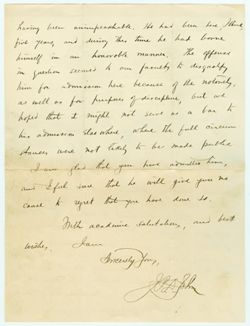 having been unimpeachable. He had been here, I think,
five years, and during this time he had borne
himself in an honorable manner. The offences
in question seemed to our faculty to disqualify
him for admission here because of the notoriety,
as well as for purposes of discipline, but we
hoped that it might not serve as a bar to
his admission elsewhere, where the full circum
stances were not likely to be made public
I am glad that you have admitted him,
and I feel sure that he will give you no
cause to regret that you have done so.
With academic salutations, and best
wishes, I am
Sincerely Yours,